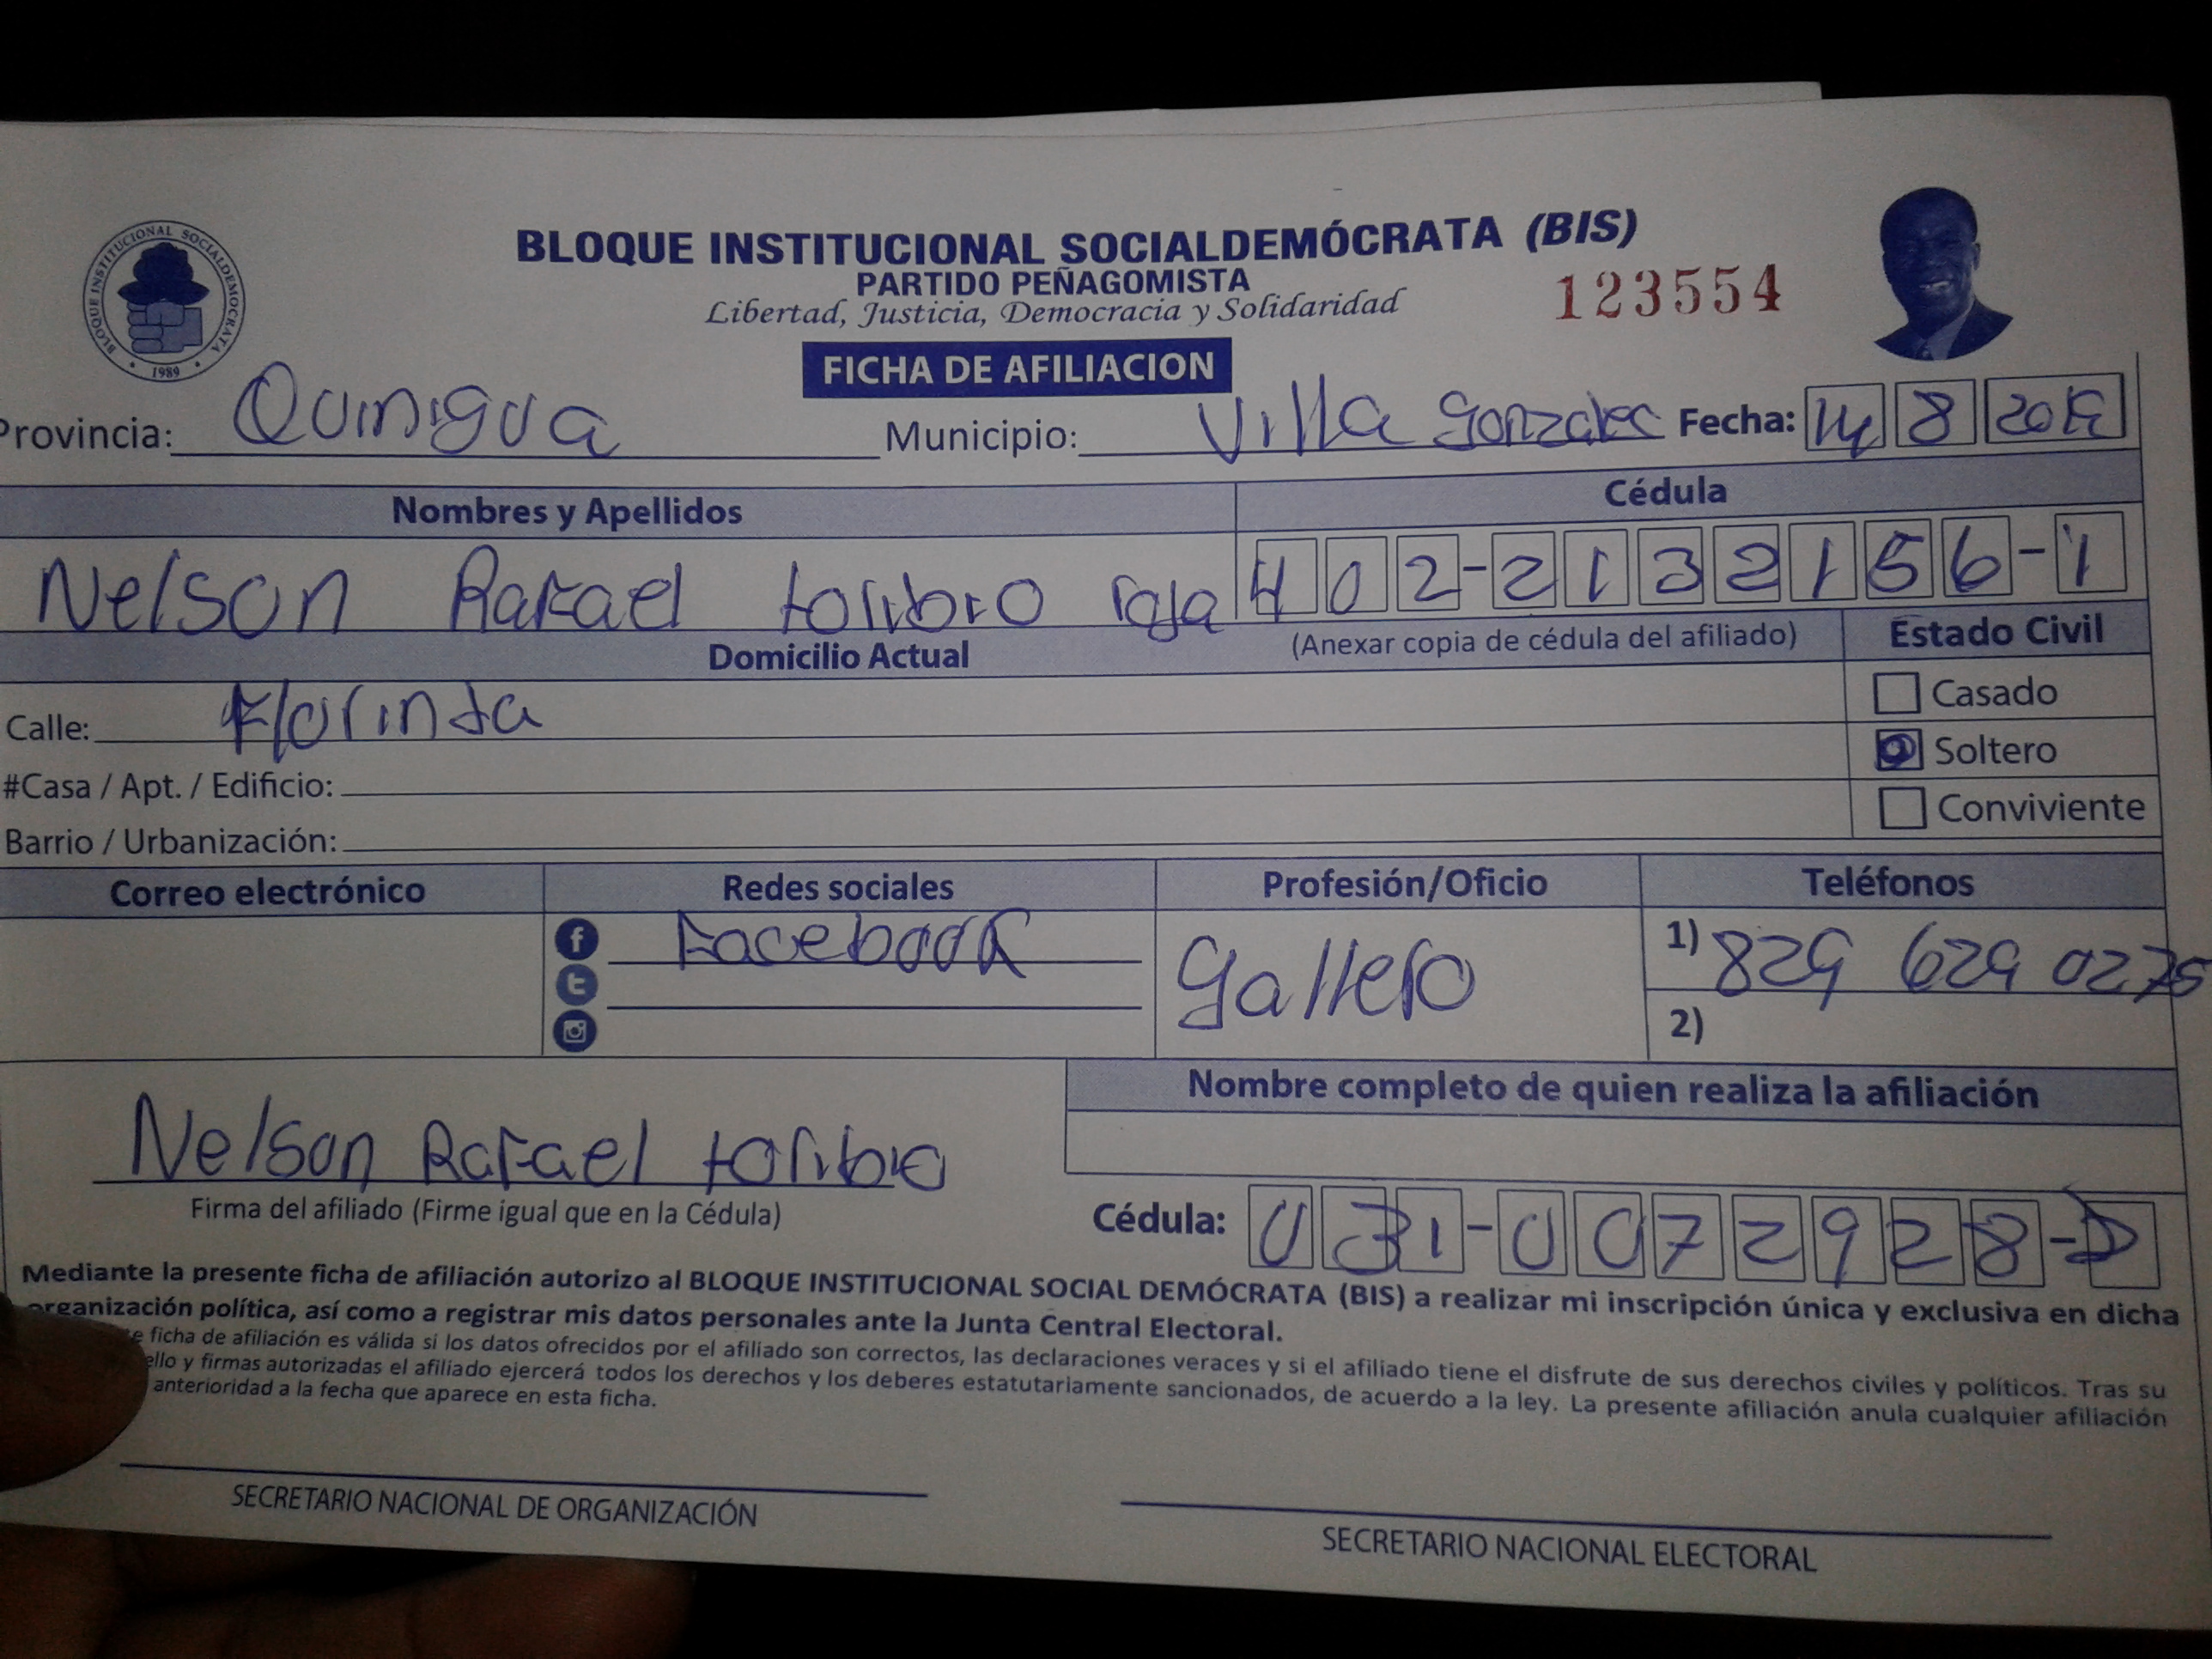 BLOQUE INSTITUCIONAL SOCIALDEMOCRATA
1989
BLOQUE INSTITUCIONAL SOCIALDEMÓCRATA (BIS)
PARTIDO PEÑAGOMISTA
Libertad, Justicia, Democracia y Solidaridad
123554
FICHA DE AFILIACION
Provincia: Quinigua Municipio: Villa Gonzalec Fecha: 14 8 2019
Nombres y Apellidos Cédula
Nelson Rafael toribio roja 402-2132156-1
Domicilio Actual (Anexar copia de cédula del afiliado) Estado Civil
Calle: Florinda Casado
Soltero
#Casa / Apt. / Edificio:
Conviviente
Barrio / Urbanización:
Correo electrónico Redes sociales Profesión/Oficio Teléfonos
Facebook gallero 1) 829 629 0275
2)
Nombre completo de quien realiza la afiliación
Nelson Rafael toribio
Firma del afiliado (Firme igual que en la Cédula) Cédula: 031-0072928-
Mediante la presente ficha de afiliación autorizo al BLOQUE INSTITUCIONAL SOCIAL DEMÓCRATA (BIS) a realizar mi inscripción única y exclusiva en dicha
organización política, así como a registrar mis datos personales ante la Junta Central Electoral.
e ficha de afiliación es válida si los datos ofrecidos por el afiliado son correctos, las declaraciones veraces y si el afiliado tiene el disfrute de sus derechos civiles y políticos. Tras su
ello y firmas autorizadas el afiliado ejercerá todos los derechos y los deberes estatutariamente sancionados, de acuerdo a la ley. La presente afiliación anula cualquier afiliación
anterioridad a la fecha que aparece en esta ficha.
SECRETARIO NACIONAL DE ORGANIZACIÓN
SECRETARIO NACIONAL ELECTORAL